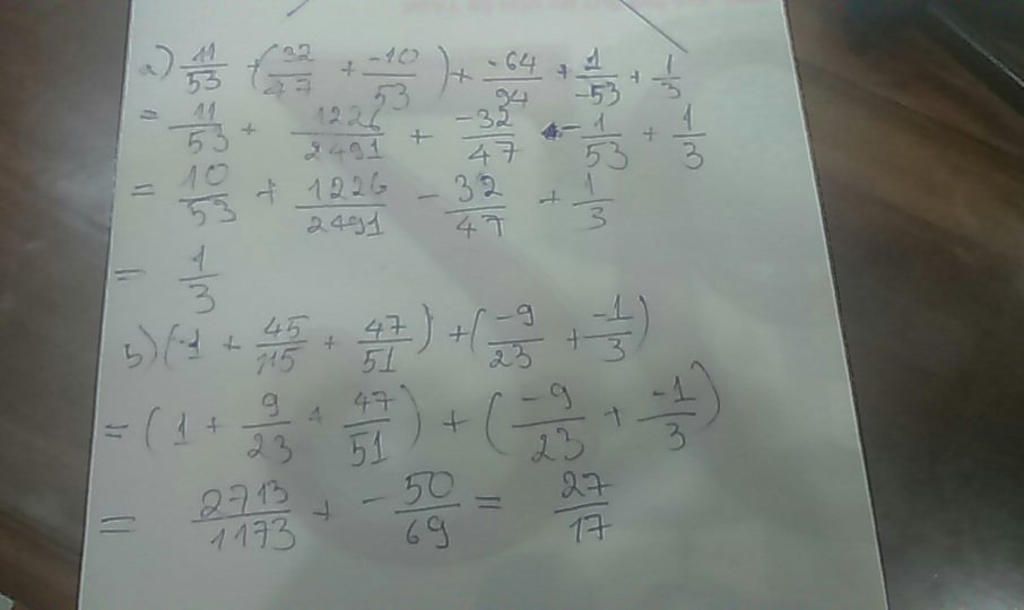 a) 11/53 + (32/47 + -10/53) + -64/94 + 1/-53 + 1/3
= 11/53 + 1226/2491 + -32/47 - 1/53 + 1/3
= 10/53 + 1226/2491 - 32/47 + 1/3
= 1/3
b) (1 + 45/115 + 47/51) + (-9/23 + -1/3)
= (1 + 9/23 + 47/51) + (-9/23 + -1/3)
= 2713/1173 + -50/69 = 27/17